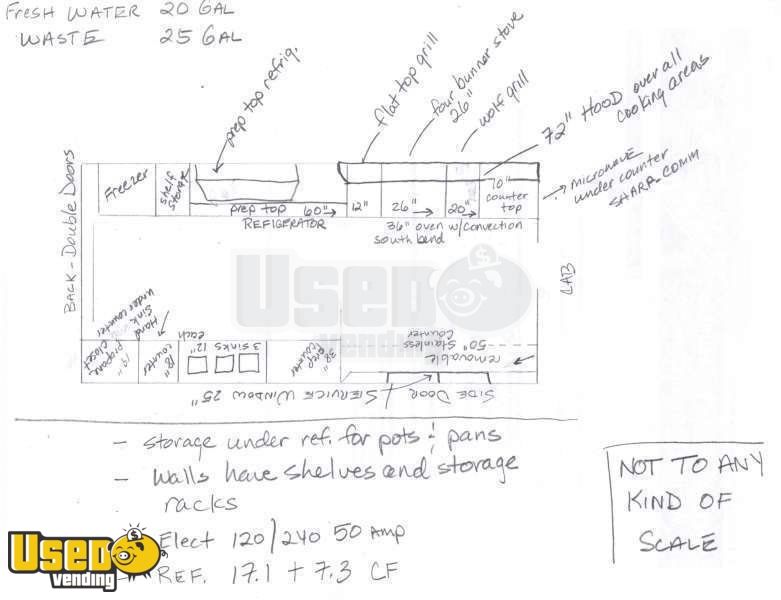 FRESH WATER 20 GAL
WASTE 25 GAL
prep top refrig.
flat top grill
four bunner stove
26"
wolf grill
72" HOOD over all
cooking areas
MICROWAVE
under counter
SHARP. COMM
BACK - Double Doors
Freezer
shelf
storage
prep top 60"
REFIGERATOR
12"
26"
20"
10"
counter
top
36" oven w/convection
south bend
CAB
19"
propane
closet
Hand
Sink
under counter
18"
counter
3 sinks 12"
each
38"
prep
counter
50" Stainless
Counter
removable
SERVICE WINDOW 25"
SIDE DOOR
USED
vending
- storage under ref. for pots & pans
- walls have shelves and storage
racks
Elect 120/240 50 Amp
- REF. 17.1 + 7.3 CF
NOT TO ANY
KIND OF
SCALE
USED
vending